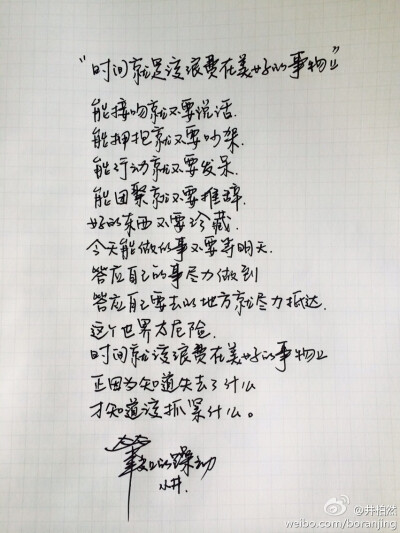 “时间就是该浪费在美好的事物上”
能接吻就不要说话.
能拥抱就不要吵架.
能行动就不要发呆.
能团聚就不要推辞.
好的东西不要珍藏.
今天能做的事不要等明天.
答应自己的事尽力做到
答应自己要去的地方就尽力抵达.
这个世界太危险.
时间就该浪费在美好的事物上
正因为知道失去了什么
才知道该抓紧什么。
的躁动
井.
@井柏然
weibo.com/boranjing